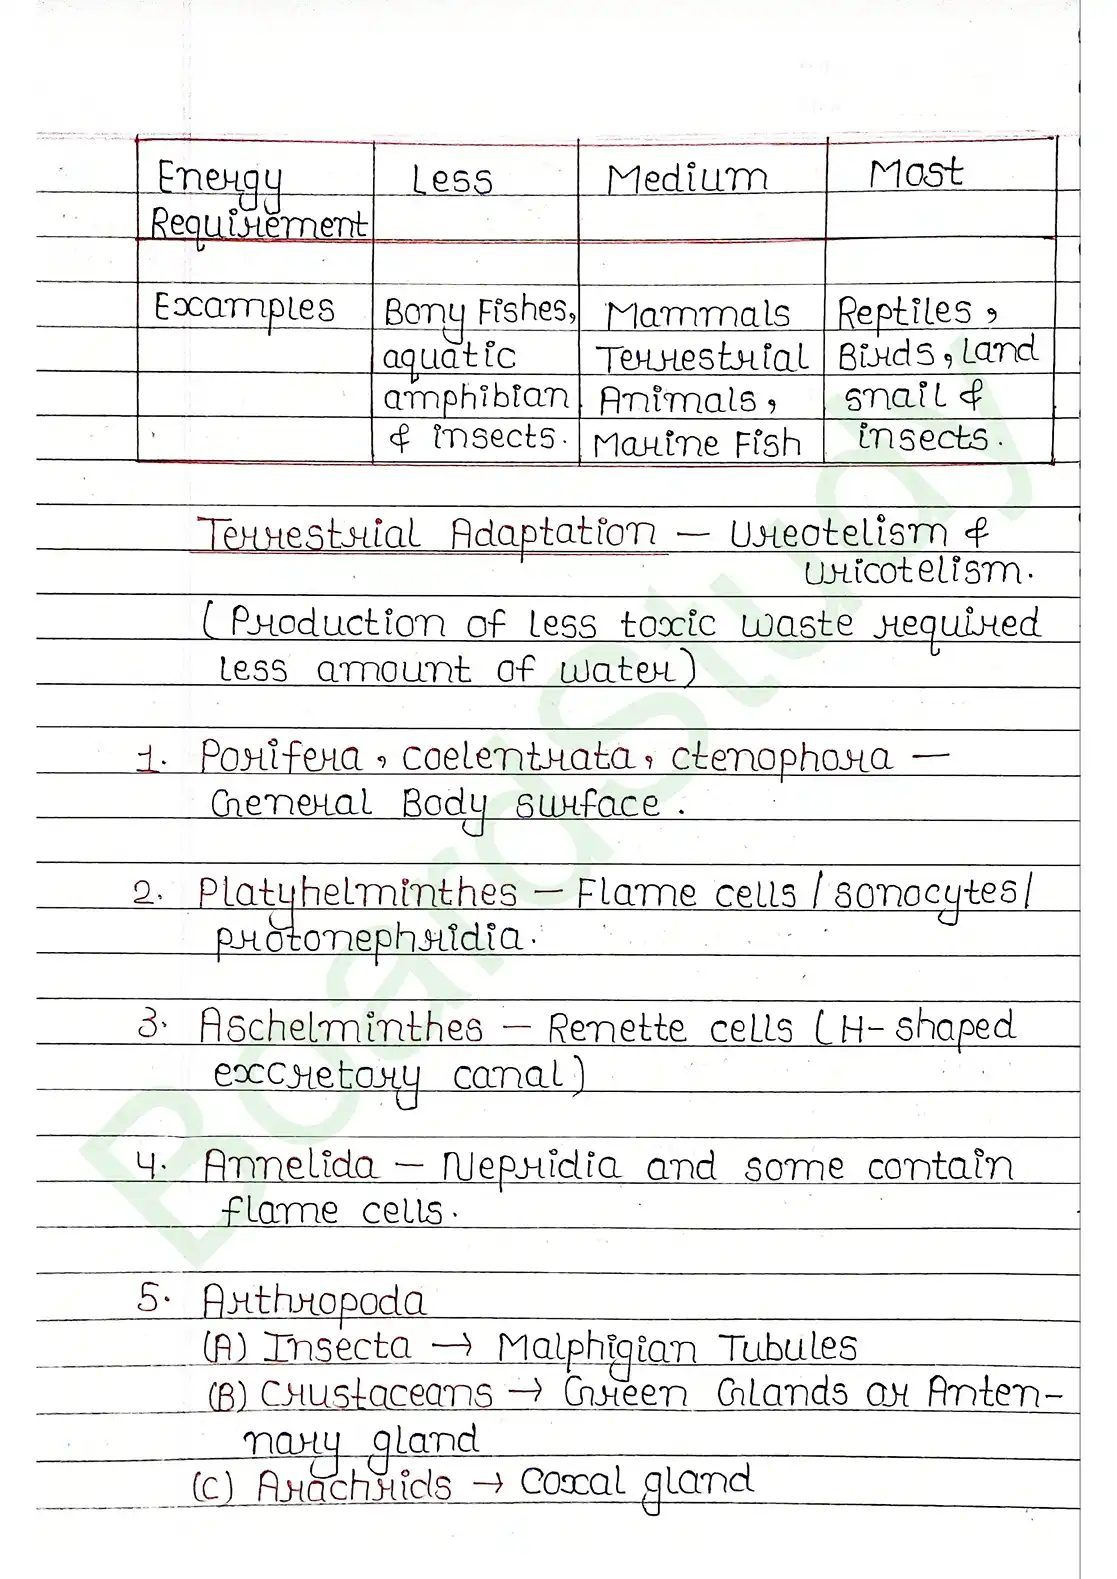 Energy Requirement | Less | Medium | Most
Examples | Bony Fishes, aquatic amphibian & insects. | Mammals Terrestrial Animals, Marine Fish | Reptiles, Birds, Land snail & insects.
Terrestrial Adaptation — Ureotelism &
Uricotelism.
(Production of less toxic waste required
less amount of water)
1. Porifera, coelentrata, ctenophora —
General Body surface.
2. Platyhelminthes — Flame cells / sonocytes/
protonephridia.
3. Aschelminthes — Renette cells (H-shaped
exccretory canal)
4. Annelida — Nepridia and some contain
flame cells.
5. Arthropoda
(A) Insecta → Malphigian Tubules
(B) Crustaceans → Green Glands or Anten-
nary gland
(C) Arachrids → Coxal gland
BoardStudy